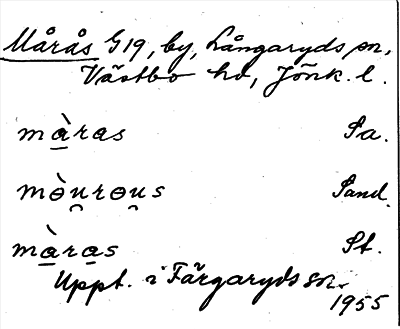 Mårås G19, by, Långaryds sn,
Västbo hd, Jönk. l.
mà̱ras Sa.
mɵ̀u̯rɵu̯s Sand.
mà̱ra̱s St.
Uppt. i Färgaryds sn.
1955